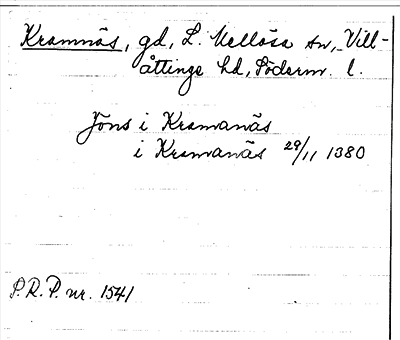 Kramnäs, gd, L. Mellösa sn, Vill-
åttinge hd, Söderm. l.
Jöns i Kramanäs
i Kramanäs 29/11 1380
P.R.P. nr. 1541